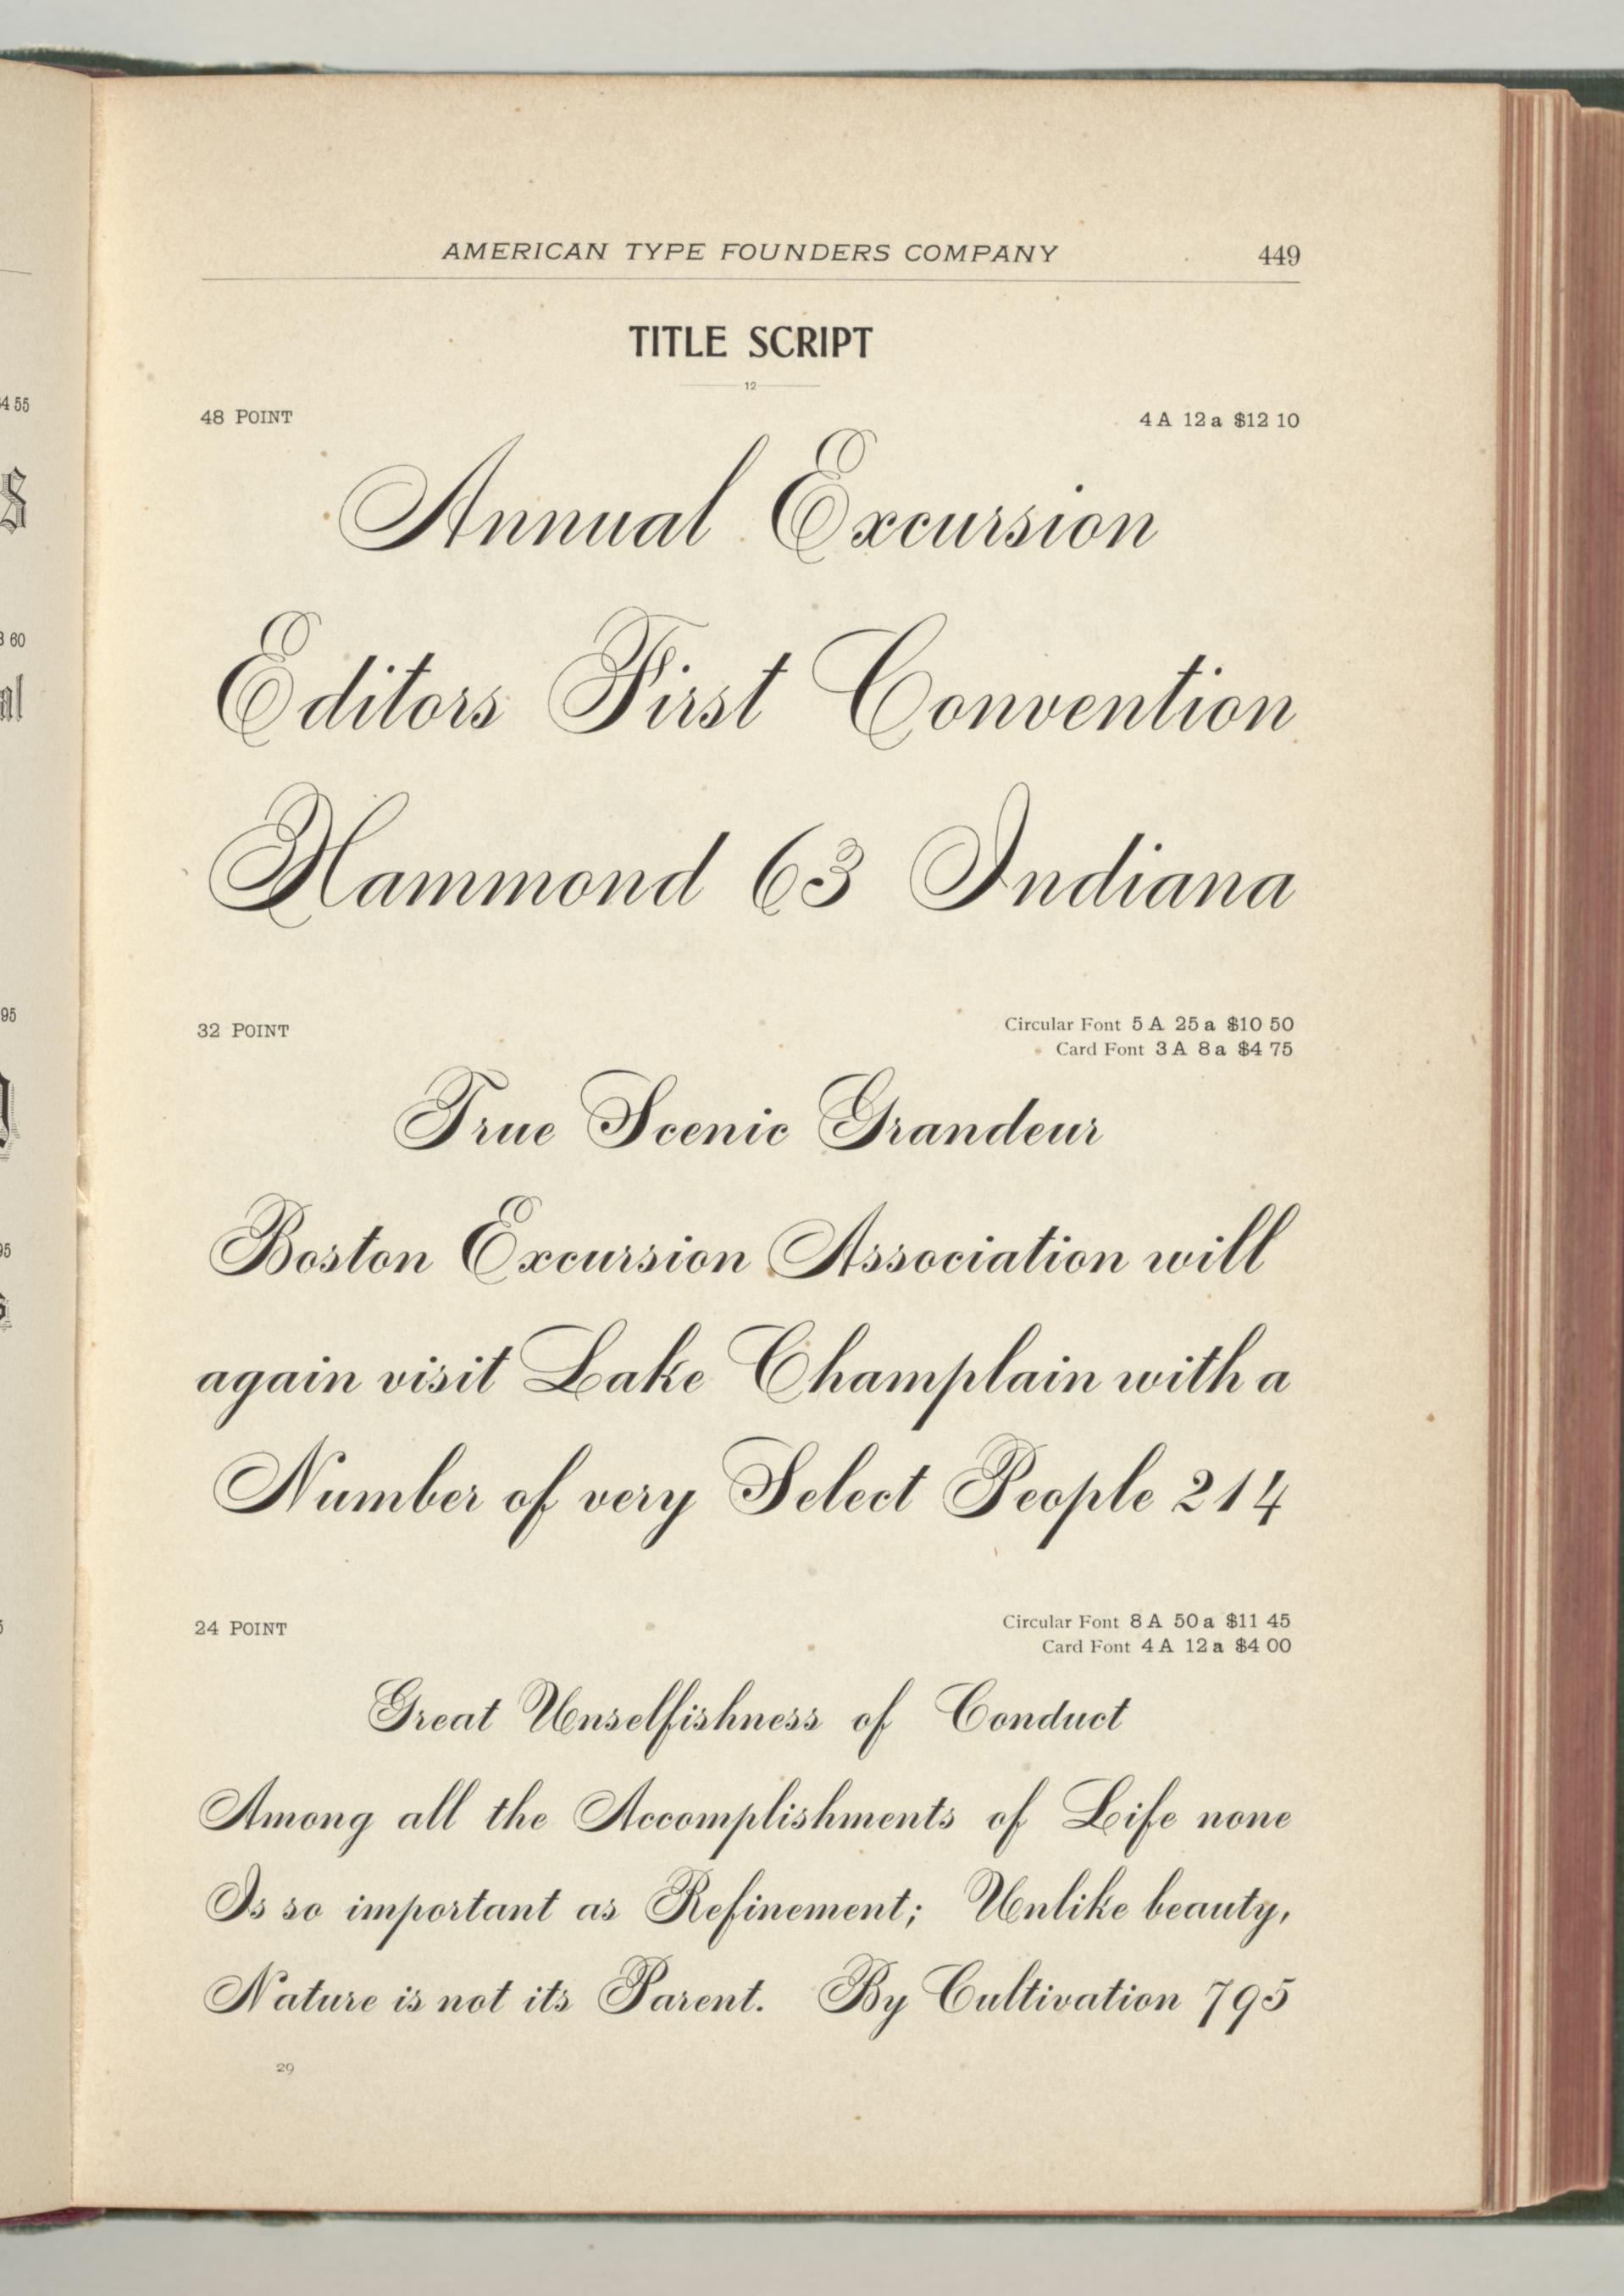 AMERICAN TYPE FOUNDERS COMPANY 449
TITLE SCRIPT
12
48 POINT 4 A 12 a $12 10
Annual Excursion
Editors First Convention
Hammond 63 Indiana
32 POINT Circular Font 5 A 25 a $10 50
Card Font 3 A 8 a $4 75
True Scenic Grandeur
Boston Excursion Association will
again visit Lake Champlain with a
Number of very Select People 214
24 POINT Circular Font 8 A 50 a $11 45
Card Font 4 A 12 a $4 00
Great Unselfishness of Conduct
Among all the Accomplishments of Life none
Is so important as Refinement; Unlike beauty,
Nature is not its Parent. By Cultivation 795
29